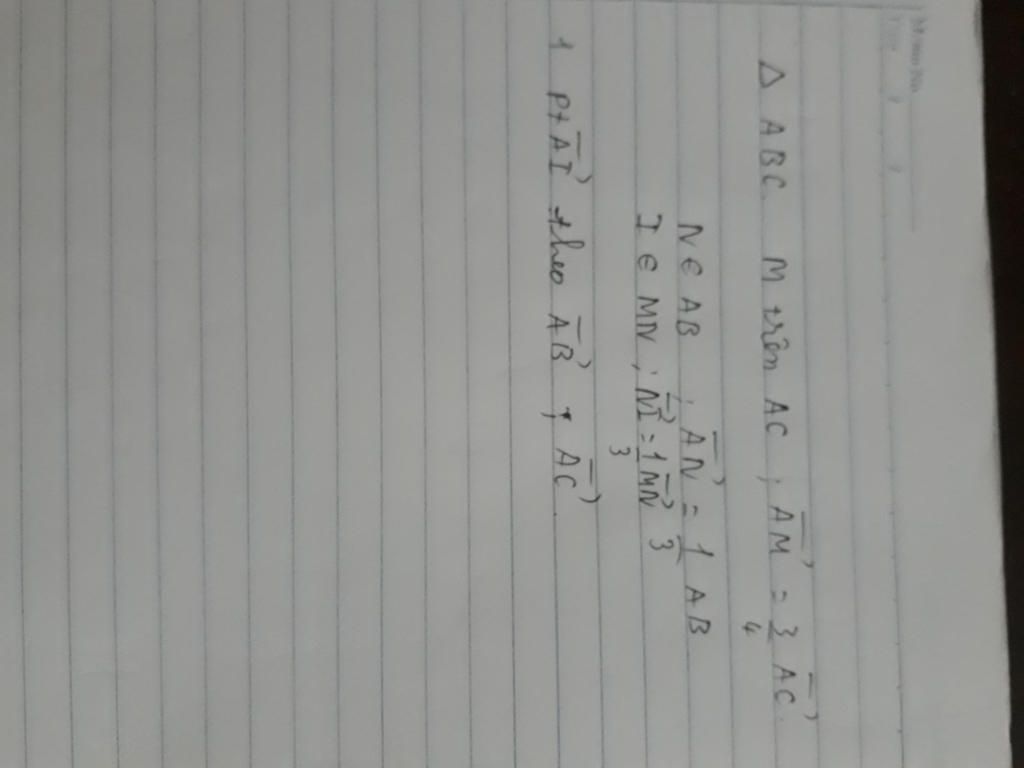 Δ ABC. M trên AC ; AM = 3/4 AC.
N ∈ AB ; AN = 1/3 AB
I ∈ MN ; NI = 1/3 MN
1 pt AI theo AB ; AC.